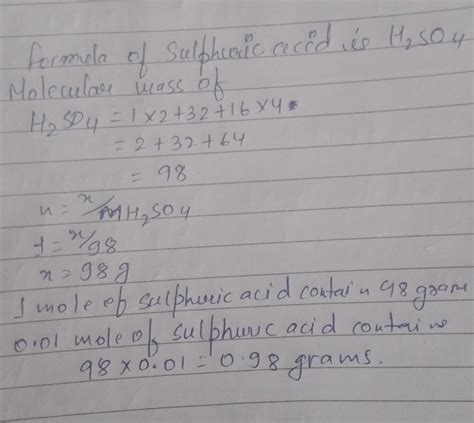 formula of Sulphuric acid is H₂SO₄
Molecular mass of
H₂SO₄ = 1×2+32+16×4.
= 2+32+64
= 98
n = x/MH₂SO₄
1 = x/98
x = 98 g
1 mole of sulphuric acid contain 98 gram
0.01 mole of sulphuric acid contains
98 × 0.01 = 0.98 grams.